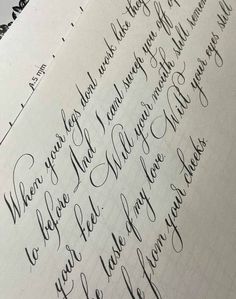 1.5 mm
When your legs dont work like they
to before And I cant sweep you off of
your feet. Will your mouth still remem
he taste of my love. Will your eyes still
le from your cheeks.